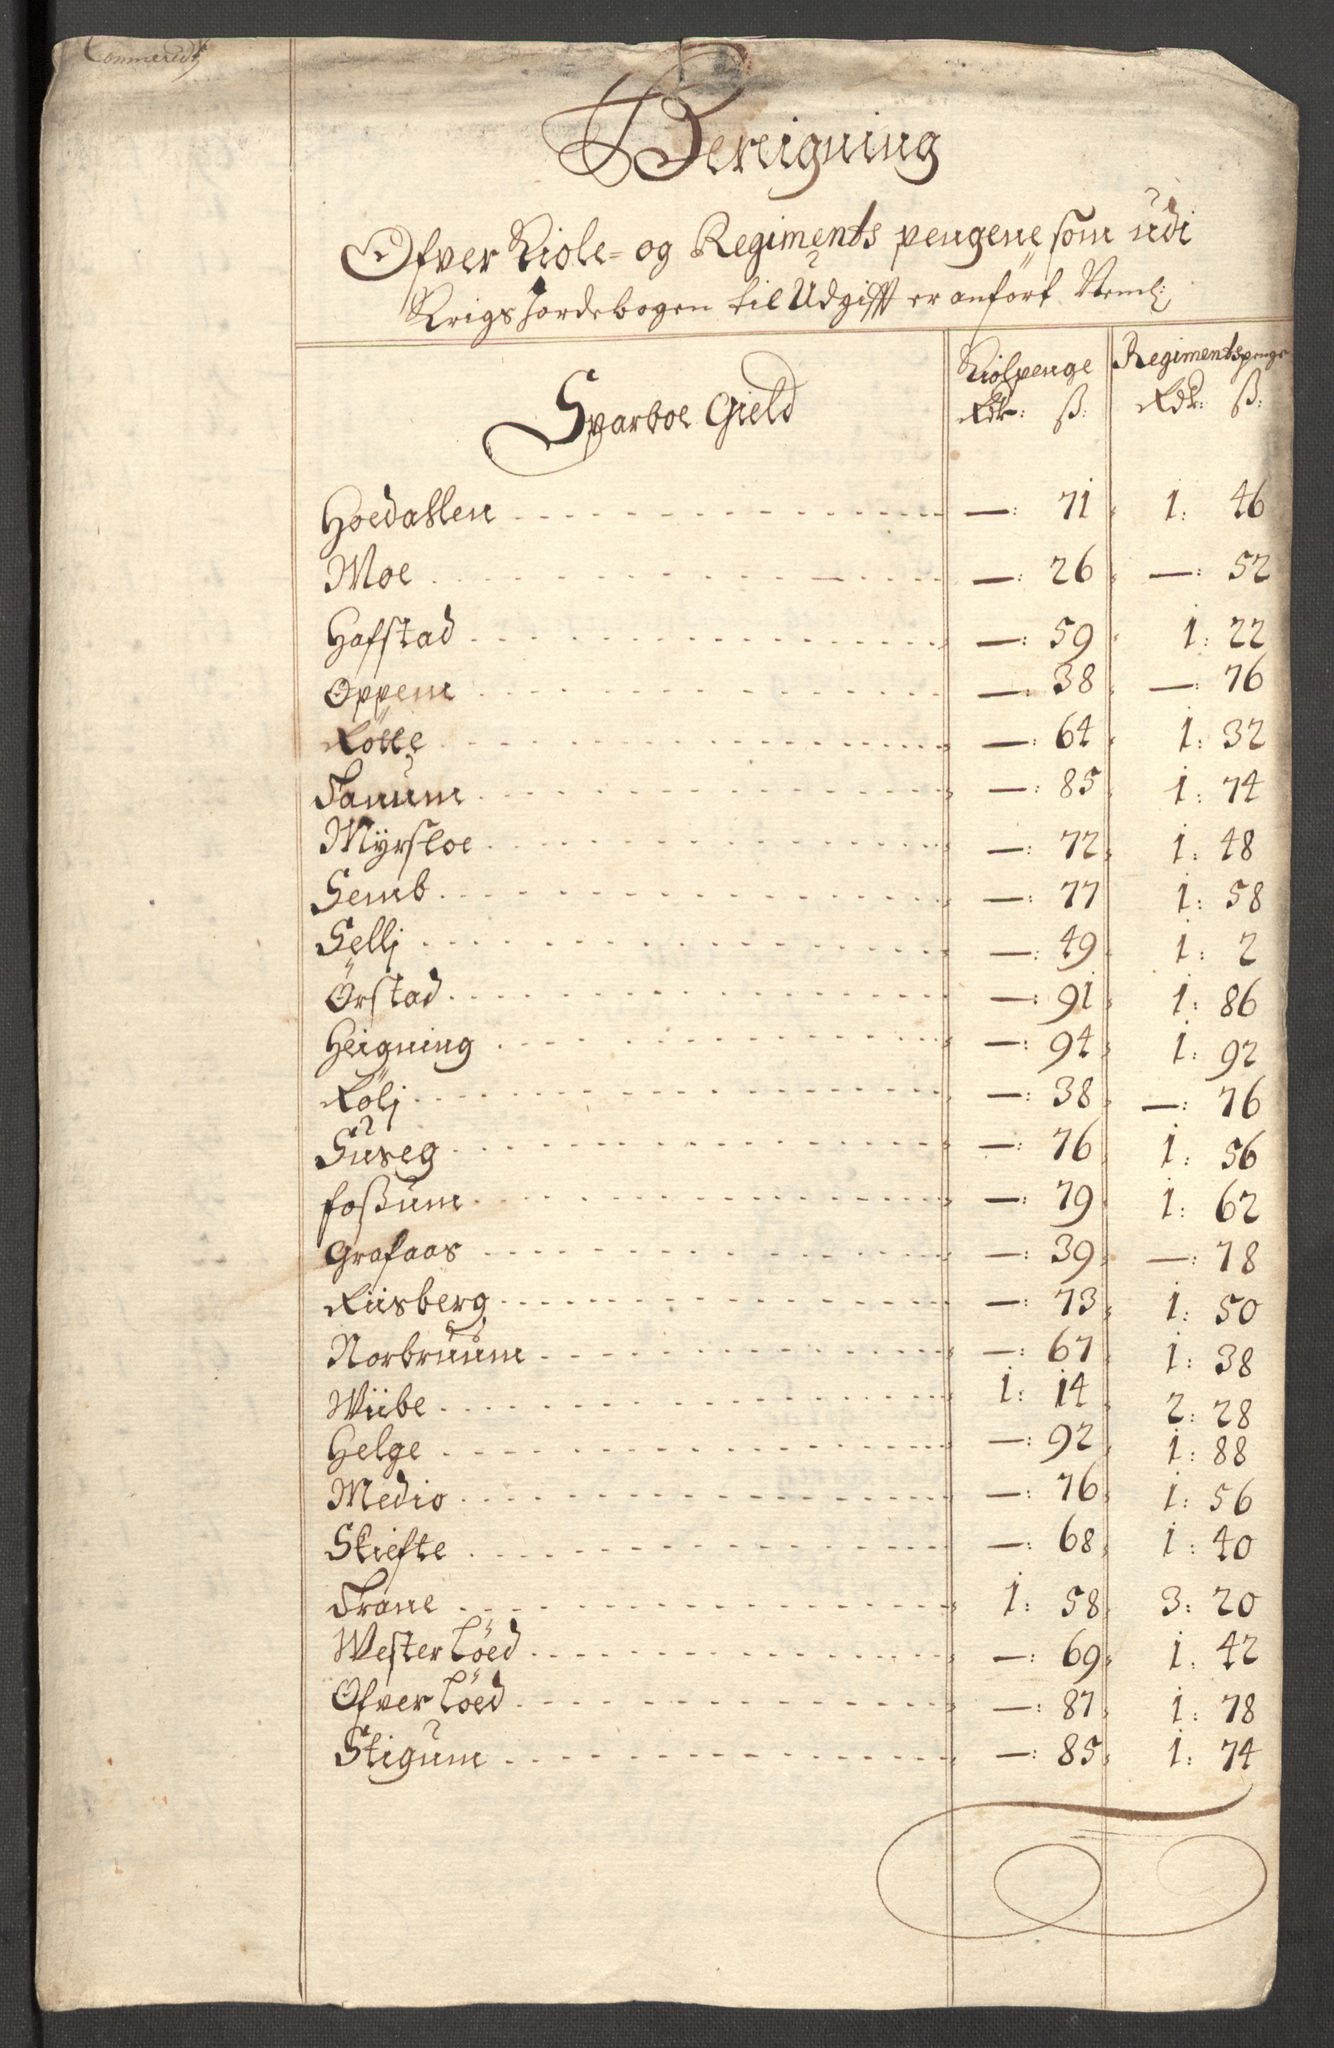 Bereigning
Ofver Kiole- og Regiments pengene som udi
Krigs Jordebogen til Udgifft er anført Neml:
Sparboe Gield
Kiolpenge Regimentspenge
Rdr: ß: Rdr: ß:
Hoedallen —: 71 1: 46
Moe —: 26 —: 52
Hafstad —: 59 1: 22
Oppem —: 38 —: 76
Rølle —: 64 1: 32
Fanum —: 85 1: 74
Mÿrsloe —: 72 1: 48
Semb —: 77 1: 58
Sellj —: 49 1: 2
Ørstad —: 91 1: 86
Heigning —: 94 1: 92
Rølj —: 38 —: 76
Sureg —: 76 1: 56
foßum —: 79 1: 62
Grafaas —: 39 —: 78
Riisberg —: 73 1: 50
Norbruum —: 67 1: 38
Wiibe 1: 14 2: 28
Helge —: 92 1: 88
Medio —: 76 1: 56
Skiefte —: 68 1: 40
Trane 1: 58 3: 20
Wester Løed —: 69 1: 42
Ofver Løed —: 87 1: 78
Stigum —: 85 1: 74